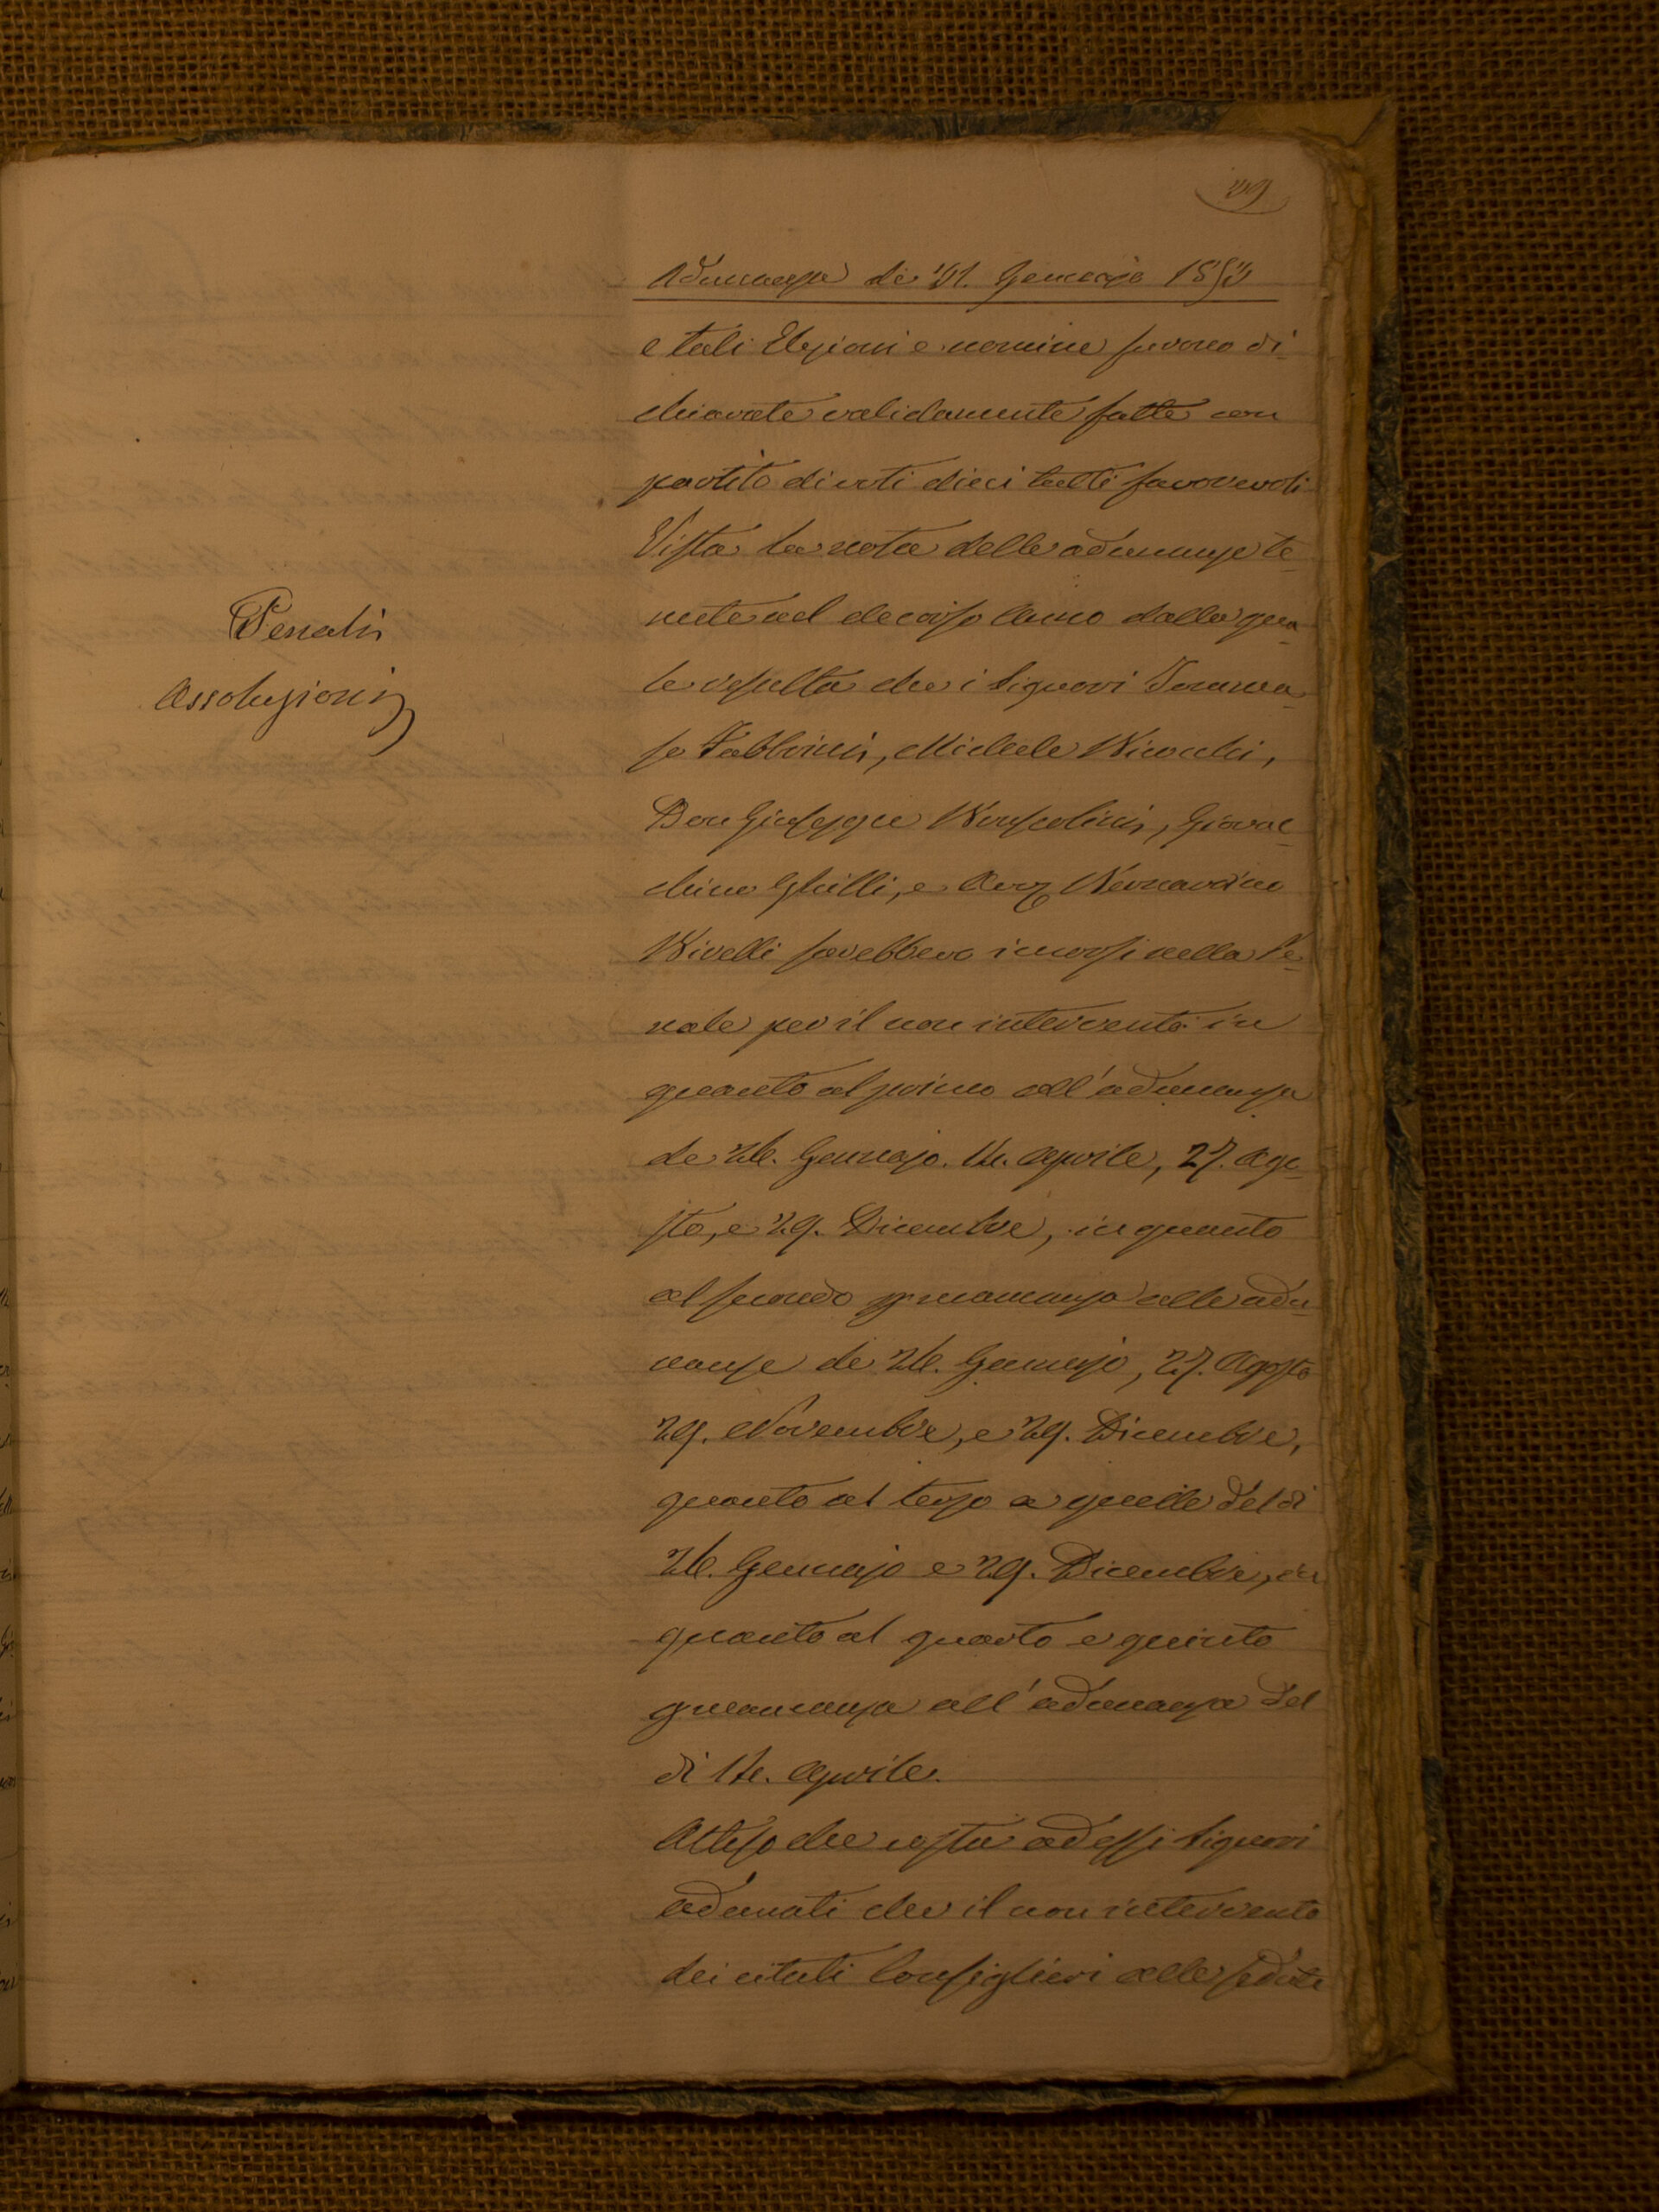 Adunanza de 31. Gennajo 1853
e tali Elezioni e nomine furono di
chiarate validamente fatte con
partito di voti dieci tutti favorevoli
Vista la nota delle adunanze te
nute nel decorso Anno dalla qua
le resulta che i Signori Tomma
so Fabbrini, Michele
Don Giuseppe Giovac
chino Ghilli, e Bernardino
sarebbero incorsi nella Pe
nale per il non intervento in
quanto al primo all'adunanza
de 26. Gennajo. 14. Aprile, 27. Ago
sto, e 29. Dicembre, in quanto
al secondo gnamanza alle adu
nanze de 26. Gennajo, 27. Agosto
29. Novembre, e 29. Dicembre,
quanto al terzo a quelle del dì
26. Gennajo e 29. Dicembre, in
quanto al quarto e quinto
all'adunanza del
dì 14. Aprile.
Atteso che costa ad essi Signori
adunati che il non intervento
dei citati Consiglieri alle sedute
Penali
Assoluzioni